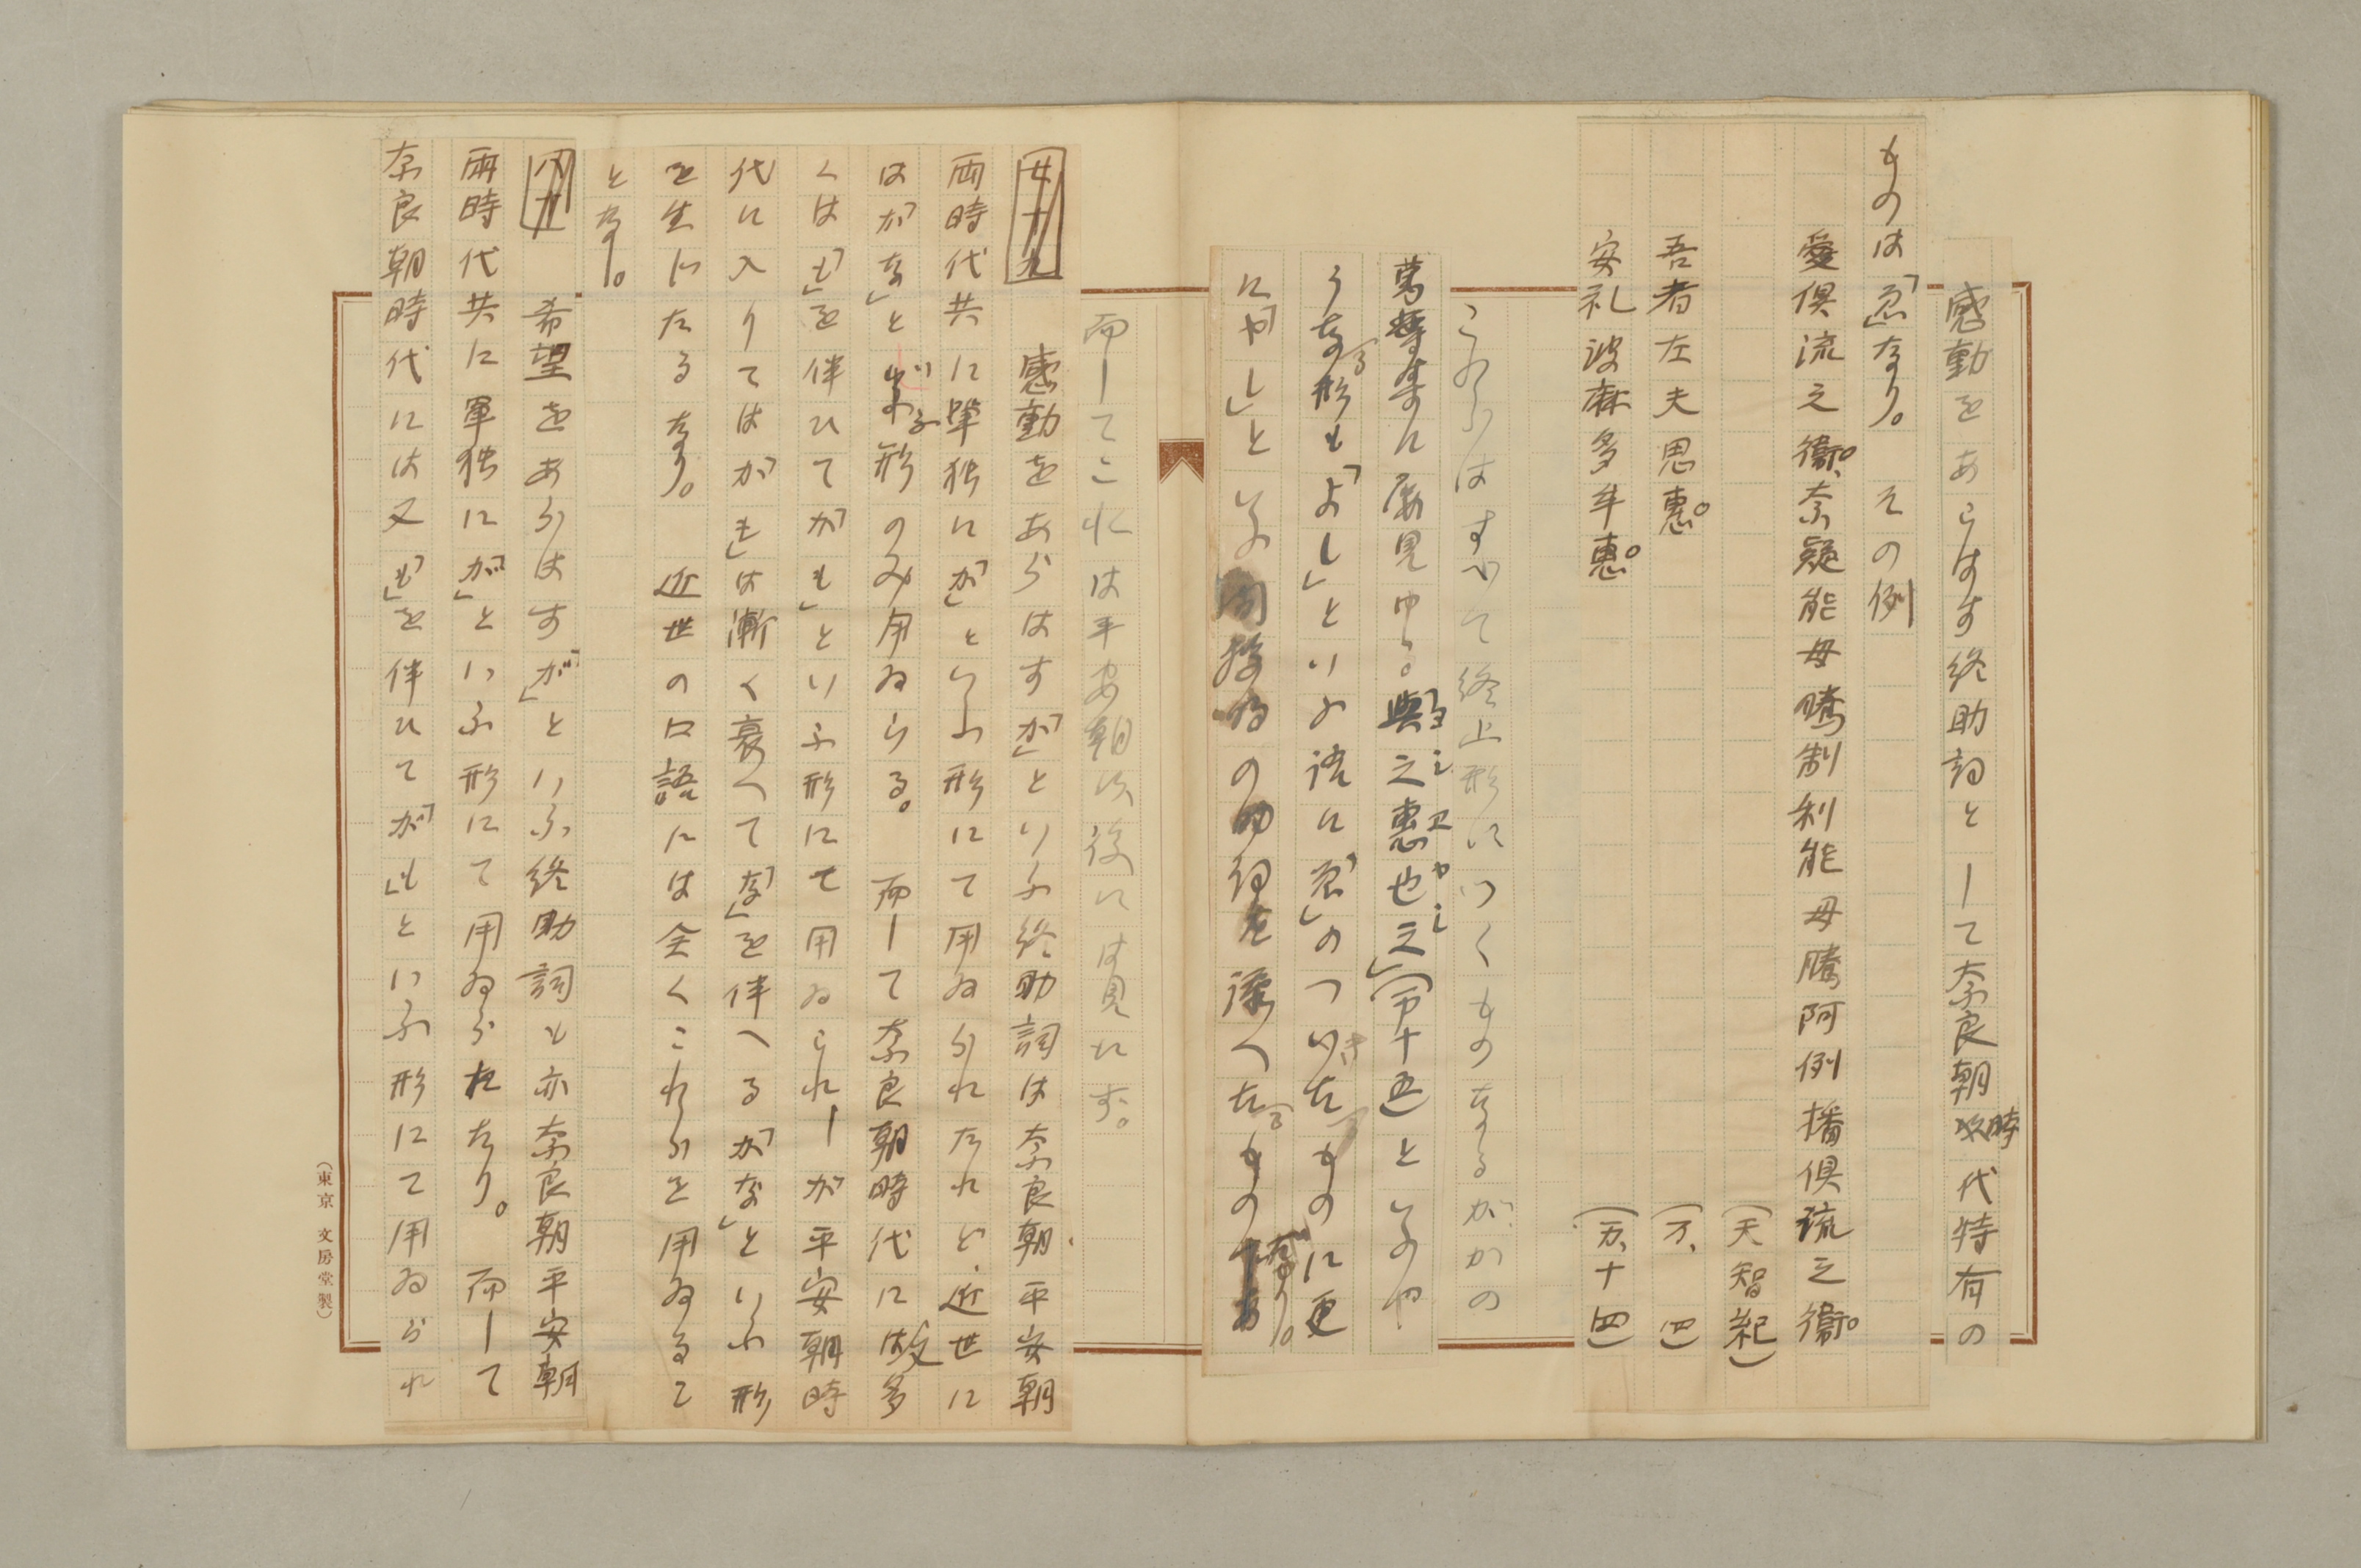 感動をあらはす終助詞として奈良朝時代特有の
ものは「ゑ」なり。その例
愛倶流之衞、奈疑能母騰制利能母騰阿例播倶流之衞。
（天智紀）
吾者左夫思惠。（万、四）
安礼波麻多牟惠。（万、十四）
これらはすべて終止形につくものなるがかの
萬葉集に屡見ゆる。「與之惠也之」（万十一）といふや
ヨシヱヤシ
うなる形も「よし」といふ語に「ゑ」のつきたるものに更
に「やし」といふ間投の助詞を添へたるものなり。
而してこれは平安朝以後には見れず。
廿十九　感動をあらはす「か」といふ終助詞は奈良朝平安朝
両時代共に単独に「か」といふ形にて用ゐられたれど、近世に
は「かな」といふ形のみ用ゐらる。而して奈良朝時代には又多
くは「も」を伴ひて「かも」といふ形にて用ゐられしが平安朝時
代に入りては「かも」は漸く衰へて「な」を伴へる「かな」といふ形
を生じたるなり。近世の口語には全くこれらを用ゐるこ
となし。
希望をあらはす「が」といふ終助詞も亦奈良朝平安朝
両時代共に単独に「が」といふ形にて用ゐられたり。而して
奈良朝時代には又「も」を伴ひて「がも」といふ形にて用ゐられ
（東京　文房堂製）